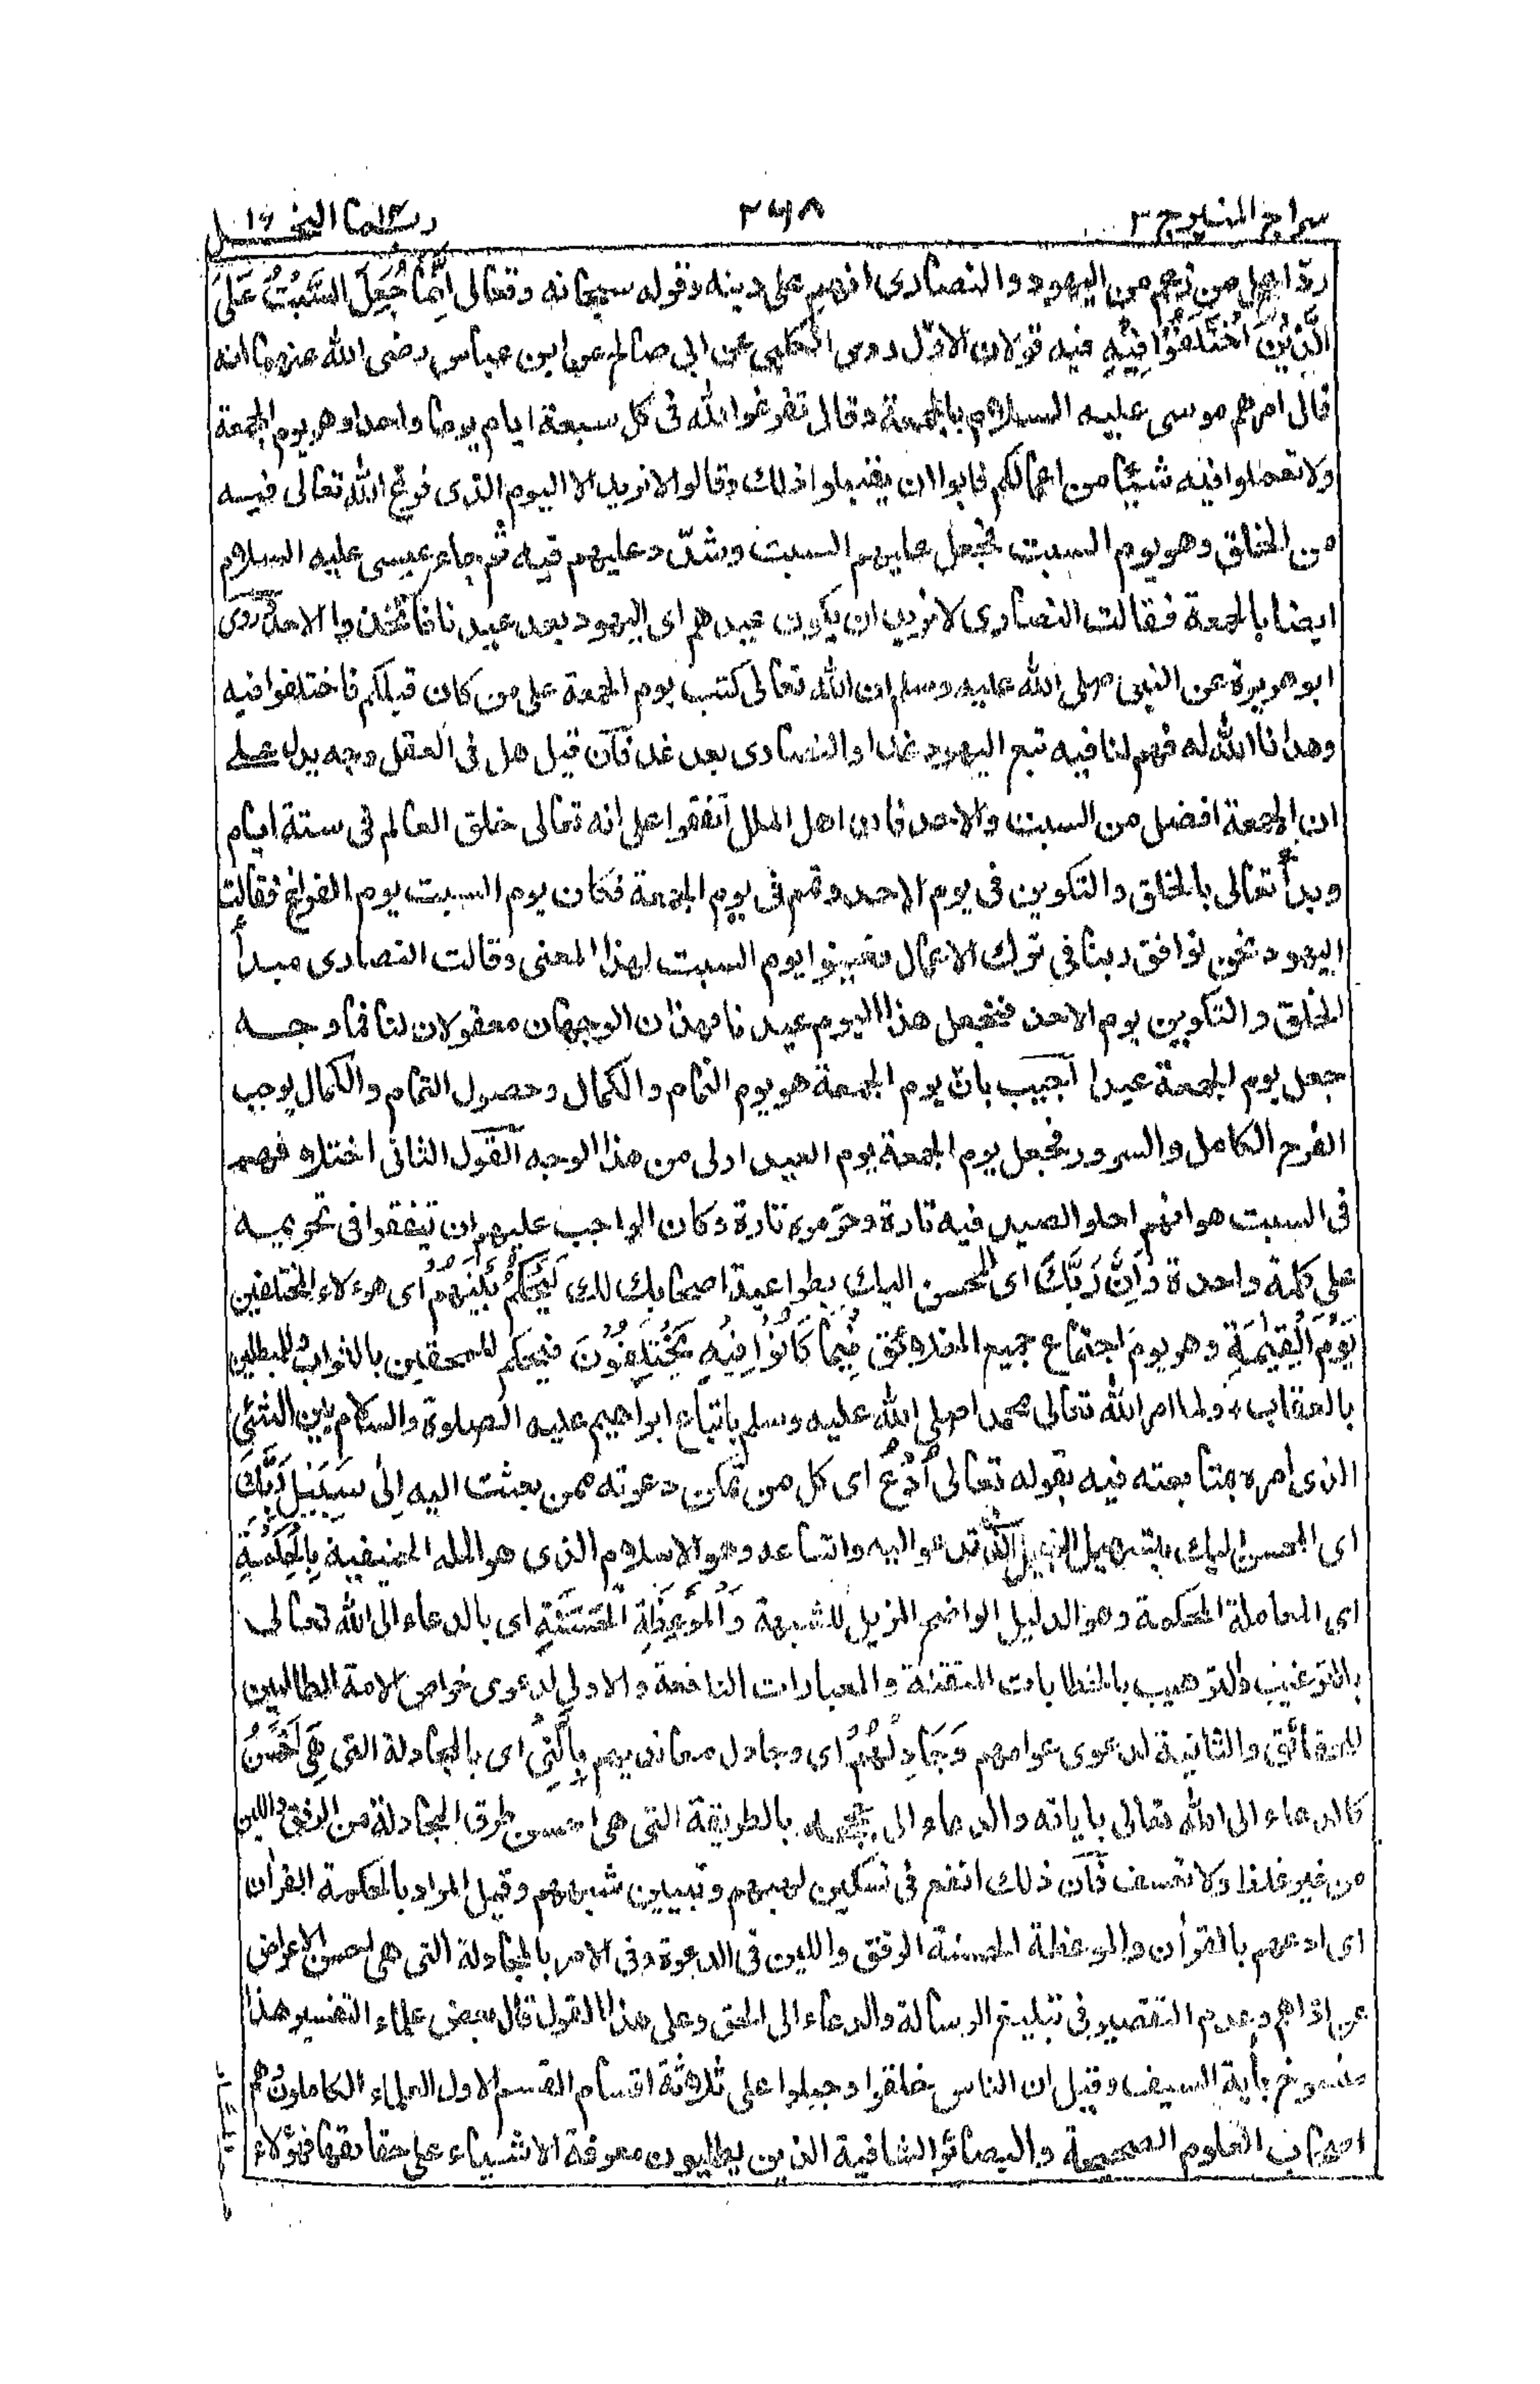 سراج المنير ج ٢ ٢٦٨ ربما ١٤ النحل ١٦
ردّا على من زعم من اليهود والنصارى انهم على دينه وقوله سبحانه وتعالى اِنَّمَا جُعِلَ السَّبْتُ عَلَى
الَّذِيْنَ اخْتَلَفُوْا فِيْهِ فيه قولان الاوّل روى الكلبي عن ابى صالح عن ابن عباس رضى الله عنهما انه
قال امرهم موسى عليه السلام بالجمعة وقال تفرغوا لله فى كل سبعة ايام يوما واحدا وهو يوم الجمعة
ولا تعملوا فيه شيئا من اعمالكم فابوا ان يقبلوا ذلك وقالوا لا نريد الا اليوم الذى فرغ الله تعالى فيه
من الخلق وهو يوم السبت فجعل عليهم السبت وشدّد عليهم فيه ثم جاء عيسى عليه السلام
ايضا بالجمعة فقالت النصارى لا نريد ان يكون عيدهم اى اليهود بعد عيدنا فاتخذوا الاحد وروى
ابو هريرة عن النبى صلى الله عليه وسلم ان الله تعالى كتب يوم الجمعة على من كان قبلكم فاختلفوا فيه
وهدانا الله له فهم لنا فيه تبع اليهود غدا والنصارى بعد غد فان قيل هل فى العقل وجه يدل على
ان الجمعة افضل من السبت والاحد فان اهل الملل اتفقوا على انه تعالى خلق العالم فى ستة ايام
وبدأ تعالى بالخلق والتكوين فى يوم الاحد وتم فى يوم الجمعة فكان يوم السبت يوم الفراغ فقالت
اليهود نحن نوافق ربنا فى ترك الاعمال فعينوا يوم السبت لهذا المعنى وقالت النصارى مبدأ
الخلق والتكوين يوم الاحد فنجعل هذا اليوم عيدنا فهذان الوجهان معقولان لنا فما وجه
جعل يوم الجمعة عيدا اجيب بان يوم الجمعة هو يوم التمام والكمال وحصول التمام والكمال يوجب
الفرح الكامل والسرور فجعل يوم الجمعة يوم العيد اولى من هذا الوجه القول الثانى اختلافهم
فى السبت هو انهم احلوا الصيد فيه تارة وحرموه تارة وكان الواجب عليهم ان يتفقوا فى تحريمه
على كلمة واحدة وَاِنَّ رَبَّكَ اى المحسن اليك بطواعية اصحابك لك لَيَحْكُمُ بَيْنَهُمْ اى هؤلاء المختلفين
يَوْمَ الْقِيٰمَةِ وهو يوم اجتماع جميع الخلائق فِيْمَا كَانُوْا فِيْهِ يَخْتَلِفُوْنَ فيحكم للمحقين بالثواب وللمبطلين
بالعقاب، ولما امر الله تعالى محمدا صلى الله عليه وسلم باتباع ابراهيم عليه الصلوة والسلام بين الشئ
الذى امره بمتابعته فيه بقوله تعالى اُدْعُ اى كل من تمكن دعوته ممن بعثت اليه اِلٰى سَبِيْلِ رَبِّكَ
اى المحسن اليك بتسهيل السبيل الذى تدعوا اليه واتساعه وهو الاسلام الذى هو المله الحنيفية بِالْحِكْمَةِ
اى المعاملة المحكمة وهو الدليل الواضح المزيل للشبهة وَالْمَوْعِظَةِ الْحَسَنَةِ اى بالدعاء الى الله تعالى
بالترغيب والترهيب بالخطابات المقنعة والعبارات النافعة والاولى لدعوى خواص الامة الطالبين
للحقائق والثانية لدعوى عوامهم وَجَادِلْهُمْ اى وجادل معانديهم بِالَّتِىْ اى بالمجادلة التى هِىَ اَحْسَنُ
كالدعاء الى الله تعالى باياته والدعاء الى حججه بالطريقة التى هى احسن طرق المجادلة من الرفق واللين
من غير غلظ ولا تعسف فان ذلك انفع فى تسكين لهبهم وتبيين شبههم وقيل المراد بالحكمة القران
اى ادعهم بالقرأن والموعظة الحسنة الرفق واللين فى الدعوة وفى الامر بالمجادلة التى هى احسن الاعراض
عن اذاهم وعدم التقصير فى تبليغ الرسالة والدعاء الى الحق وعلى هذا القول قال بعض علماء التفسير هذا
منسوخ بأية السيف وقيل ان الناس خلقوا وجبلوا على ثلاثة اقسام القسم الاول العلماء الكاملون هم
اصحاب العلوم الصحيحة والبصائر الشافية الذين يطلبون معرفة الاشياء على حقائقها فهؤلاء